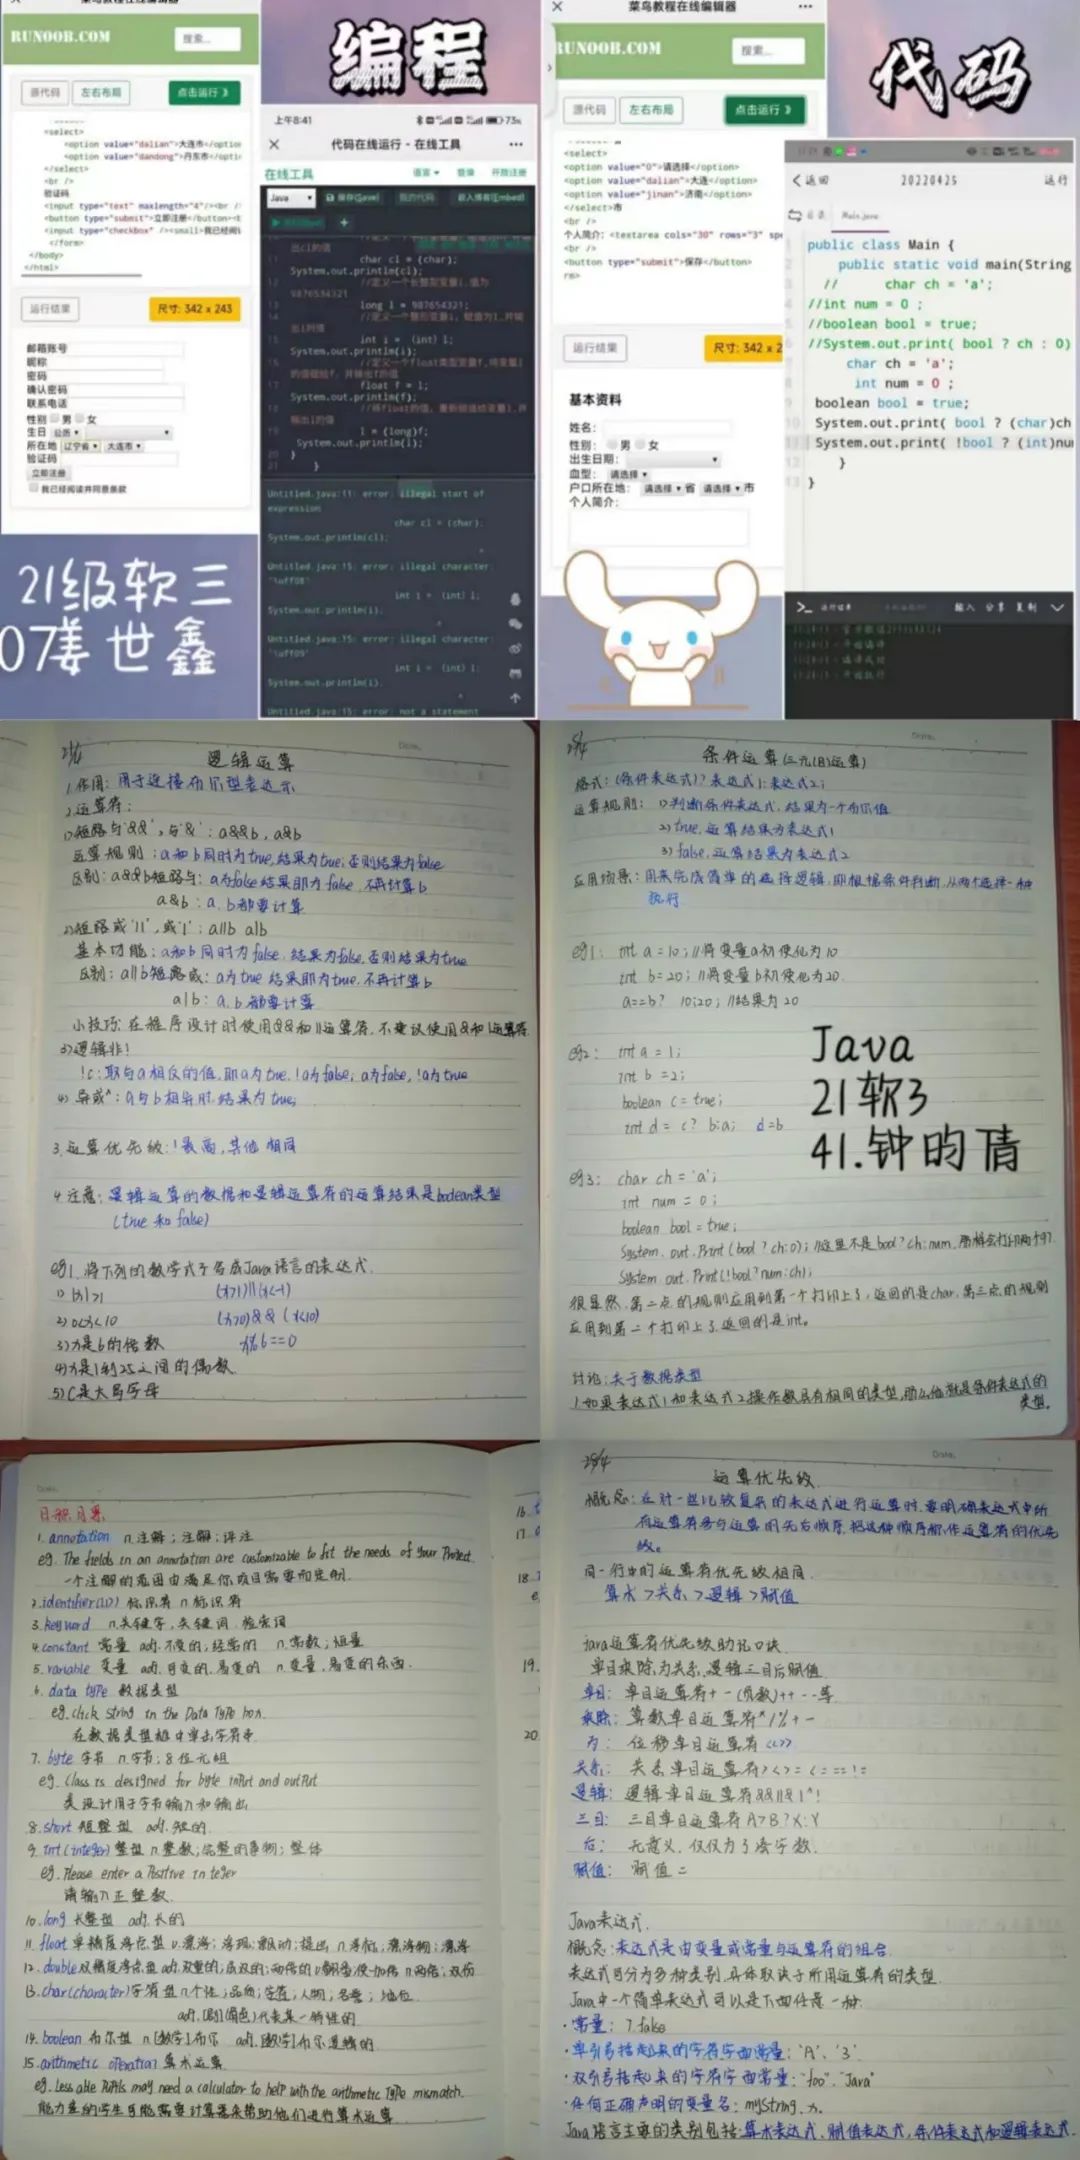 菜鸟教程在线编辑器
RUNOOB.COM
搜索...
源代码 左右布局 点击运行 》
<select>
<option value="dalian">大连市</optio
<option value="dandong">丹东市</optio
</select>
<br />
验证码
<input type="text" maxlength="4"/><br /
<button type="submit">立即注册</button><b
<input type="checkbox" /><small>我已经阅读
</form>
</body>
</html>
运行结果 尺寸: 342 x 243
邮箱账号
昵称
密码
确认密码
联系电话
性别 男 女
生日 公历
所在地 辽宁省 大连市
验证码
立即注册
我已经阅读并同意条款
21级软三
07姜世鑫
编程
上午8:41 73%
代码在线运行 - 在线工具
在线工具 语言 登录
Java 保存(Save) 我的代码 嵌入博客(Embed)
出cl的值
char cl = (char);
System.out.println(cl);
//定义一个长整型变量l，值为
987654321
long l = 987654321;
int i = （int）l;
System.out.println(i);
float f = l;
System.out.println(f);
l = (long)f;
System.out.println(l);
}
}
Untitled.java:11: error: illegal start of
expression
char cl = (char);
System.out.println(cl);
Untitled.java:15: error: illegal character:
'\uff08'
int i = （int）l;
System.out.println(i);
Untitled.java:15: error: illegal character:
'\uff09'
int i = （int）l;
System.out.println(i);
Untitled.java:15: error: not a statement
菜鸟教程在线编辑器
RUNOOB.COM
搜索...
源代码 左右布局 点击运行 》
<select>
<option value="0">请选择</option>
<option value="dalian">大连</option>
<option value="jinan">济南</option>
</select>市
<br />
个人简介：<textarea cols="30" rows="3" spe
<br />
<button type="submit">保存</button>
rm>
运行结果 尺寸: 342 x 2
基本资料
姓名：
性别： 男 女
出生日期：
血型： 请选择
户口所在地： 请选择 省 请选择 市
个人简介：
代码
返回 20220425 运行
目录 Main.java
public class Main {
public static void main(String
// char ch = 'a';
//int num = 0 ;
//boolean bool = true;
//System.out.print( bool ? ch : 0)
char ch = 'a';
int num = 0 ;
boolean bool = true;
System.out.print( bool ? (char)ch
System.out.print( !bool ? (int)nu
}
}
运行结果 输入 分享 复制
逻辑运算
1.作用：用于连接布尔型表达示
2.运算符：
1)短路与'&&'，与'&'：a&&b，a&b
运算规则：a和b同时为true,结果为true;否则结果为false
区别：a&&b短路与：a为false结果即为false，不再计算b
a&b：a、b都要计算
2)短路或'||'，或'|'：a||b a|b
基本功能：a和b同时为false，结果为false,否则结果为true
区别：a||b短路或：a为true结果即为true,不再计算b
a|b：a、b都要计算
小技巧：在程序设计时使用&&和||运算符，不建议使用&和|运算符
3)逻辑非！
!c：取与a相反的值，即a为true，!a为false；a为false，!a为true
4) 异或^：a与b相异时，结果为true;
3.运算优先级：！最高，其他相同
4.注意：逻辑运算的数据和逻辑运算符的运算结果是boolean类型
(true 和 false)
eg1.将下列的数学式子写成Java语言的表达式
1) |x|>1 (x>1)||(x<-1)
2) 0<x<10 (x>0)&&(x<10)
3)x是6的倍数 x%6==0
4)x是1到25之间的偶数
5)C是大写字母
25/4 条件运算(三元(目)运算)
格式：(条件表达式)？表达式1：表达式2；
运算规则：1)判断条件表达式，结果为一个布尔值
2)true,运算结果为表达式1
3)false,运算结果为表达式2
应用场景：用来完成简单的选择逻辑,即根据条件判断，从两个选择一种
执行
eg1：int a=10；//将变量a初使化为10
int b=20；//将变量b初使化为20
a==b? 10:20；//结果为20
eg2：int a=1；
int b=2；
boolean c=true；
int d= c? b:a； d=b
eg3：char ch='a'；
int num=0；
boolean bool=true；
System.out.Print(bool?ch:0)；//这里不是bool?ch:num，那样会打印两个97
System.out.Print(!bool?num:ch)；
很显然，第二点的规则应用到第一个打印上了，返回的是char，第三点的规则
应用到第二个打印上了，返回的是int。
讨论：关于数据类型
1.如果表达式1和表达式2操作数具有相同的类型，那么他就是条件表达式的
类型。
Java
21软3
41.钟昀倩
日积月累
1. annotation n.注解；注解；评注
eg. The fields in an annotation are customizable to fit the needs of your Project.
一个注解的范围由满足你项目需要而定制.
2.identifier(ID) 标识符 n.标识符
3.keyword n.关键字，关键词，检索词
4.constant 常量 adj.不变的；经常的 n.常数；恒量
5.variable 变量 adj.可变的，易变的 n.变量，易变的东西
6. data type 数据类型
eg.click string in the Data Type box.
在数据类型框中单击字符串
7. byte 字节 n.字节；8位元组
eg. Class is designed for byte input and output
类设计用于字节输入和输出
8.short 短整型 adj.短的
9. int (integer)整型 n.整数；完整的事物；整体
eg.Please enter a Positive integer
请输入正整数
10.long 长整型 adj.长的
11.float 单精度浮点型 v.漂浮；浮现；飘动；提出 n.浮标；漂浮物；漂浮
12.double双精度浮点型 adj.双重的；成双的；两倍的 v.翻番，使加倍 n.两倍；双份
13.char(character)字符型 n.个性；品质；字符；人物；名誉；地位
adj.(剧)(角色)代表某一特性的
14.boolean 布尔型 n.[数学]布尔 adj.[数学]布尔逻辑的
15.arithmetic operation 算术运算
eg.Less able pupils may need a calculator to help with the arithmetic type mismatch.
能力差的学生可能需要计算器来帮助他们进行算术运算
16.
17.
18.
19.
20
28/4 运算优先级
概念：在对一些比较复杂的表达式进行运算时，要明确表达式中所
有运算符参与运算的先后顺序，把这种顺序称作运算符的优先
级。
同一行中的运算符优先级相同
算术＞关系＞逻辑＞赋值
java运算符优先级助记口诀
单目乘除为关系，逻辑三目后赋值
单目：单目运算符+ -(负数)++ --等
乘除：算数单目运算符*/%+-
为：位移单目运算符<<>>
关系：关系单目运算符><>=<===!=
逻辑：逻辑单目运算符&&||&|^!
三目：三目单目运算符A>B?X:Y
后：无意义，仅仅为了凑字数
赋值：赋值=
Java表达式
概念：表达式是由变量或常量与运算符的组合
表达式可分为多种类别，具体取决于所用运算符的类型
Java中一个简单表达式可以是下面任意一种：
·常量：7.false
·单引号括起来的字符字面常量：'A'、'3'
·双引号括起来的字符字面常量："foo"、"Java"
·任何正确声明的变量名：myString、x
Java语言主要的类别包括：算术表达式、赋值表达式，条件表达式和逻辑表达式